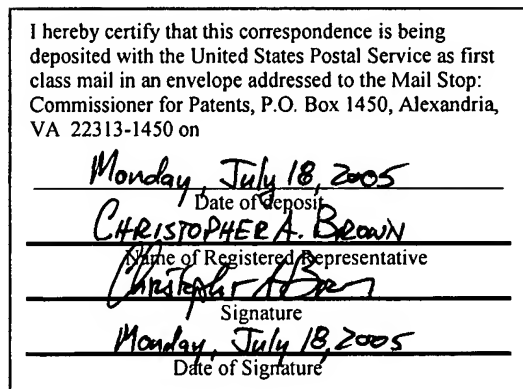 I hereby certify that this correspondence is being
deposited with the United States Postal Service as first
class mail in an envelope addressed to the Mail Stop:
Commissioner for Patents, P.O. Box 1450, Alexandria,
VA 22313-1450 on
Monday, July 18, 2005
Date of deposit
CHRISTOPHER A. BROWN
Name of Registered Representative
Christopher A Brown
Signature
Monday, July 18, 2005
Date of Signature